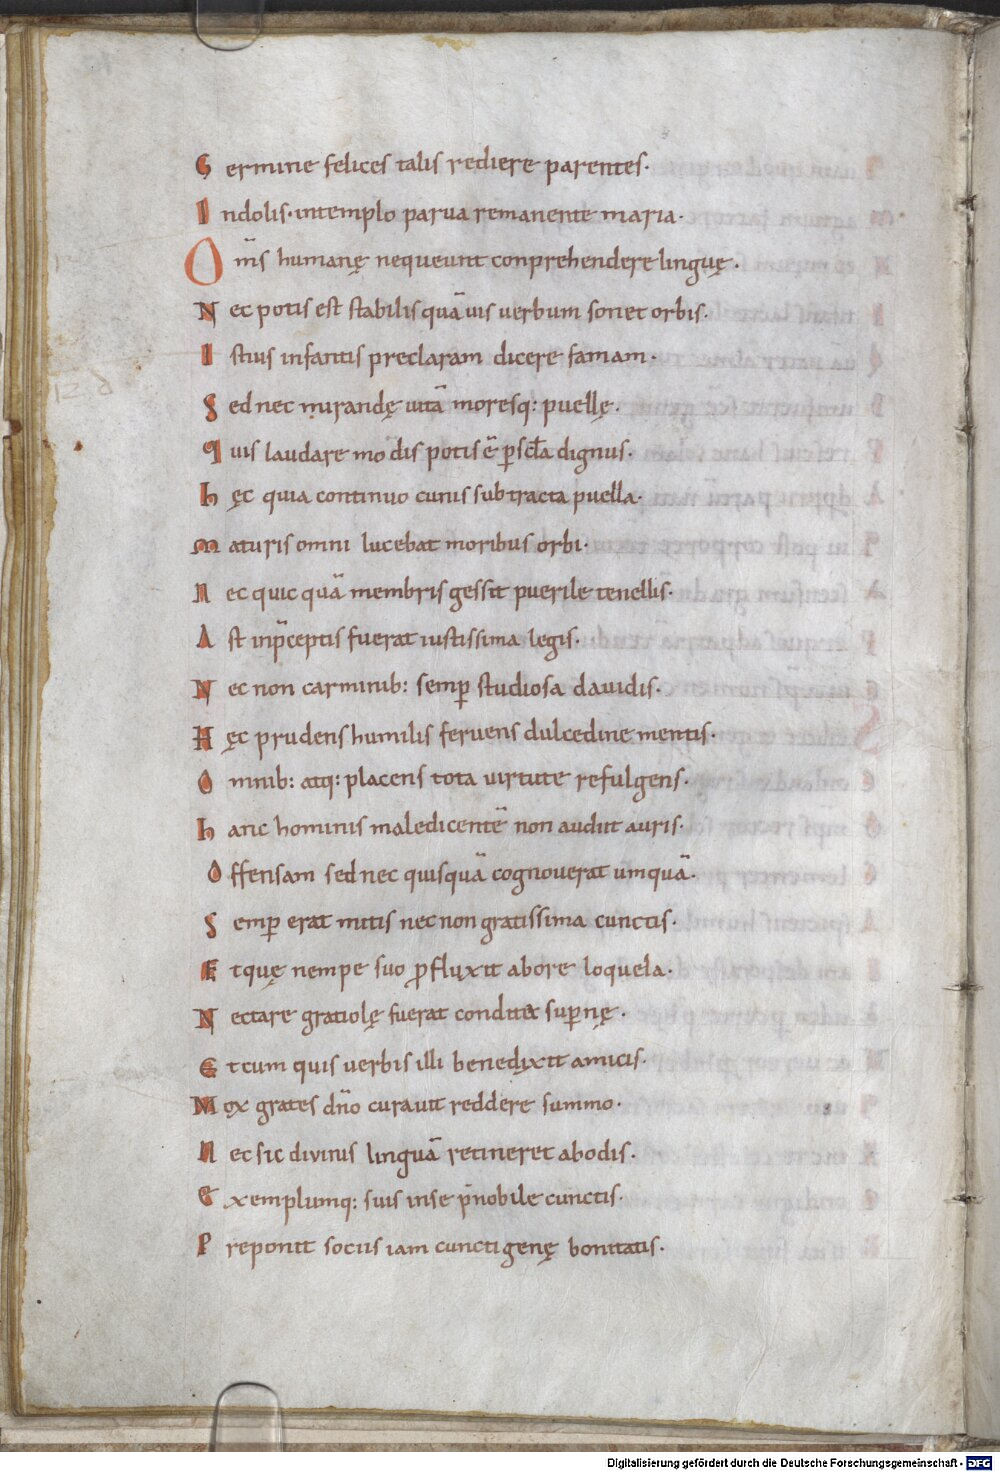 Germine felices talis rediere parentes·
Indolis· intemplo parua remanente maria·
Om̅s humanę nequeunt conprehendere linguę·
Nec potis est stabilis quā uis uerbum sonet orbis·
Istius infantis preclaram dicere famam·
Sed nec mirandę uitā moresq: puellę·
quis laudare modis potis ē p̲scła dignus·
hęc quia continuo cunis subtracta puella·
maturis omni lucebat moribus orbi·
nec quic quā membris gessit puerile tenellis·
Ast inp̄ceptis fuerat iustissima legis·
Nec non carminib: semp̲ studiosa dauidis·
Hęc prudens humilis feruens dulcedine mentis·
Omnib: atq: placens tota uirtute refulgens·
hanc hominis maledicentē non audiit auris·
Offensam sed nec quisquā cognouerat umquā·
Semp̲ erat mitis nec non gratissima cunctis·
Etquę nempe suo p̲fluxit abore loquela·
Nectare gratiolę fuerat condita sup̲nę·
Et cum quis uerbis illi benedixit amicis·
Mox grates dn̄o curauit reddere summo·
nec sic diuinis linguā retineret abodis·
Exemplumq: suis inse p̄nobile cunctis·
Preponit sociis iam cunctigenę bonitatis·
Digitalisierung gefördert durch die Deutsche Forschungsgemeinschaft - DFG